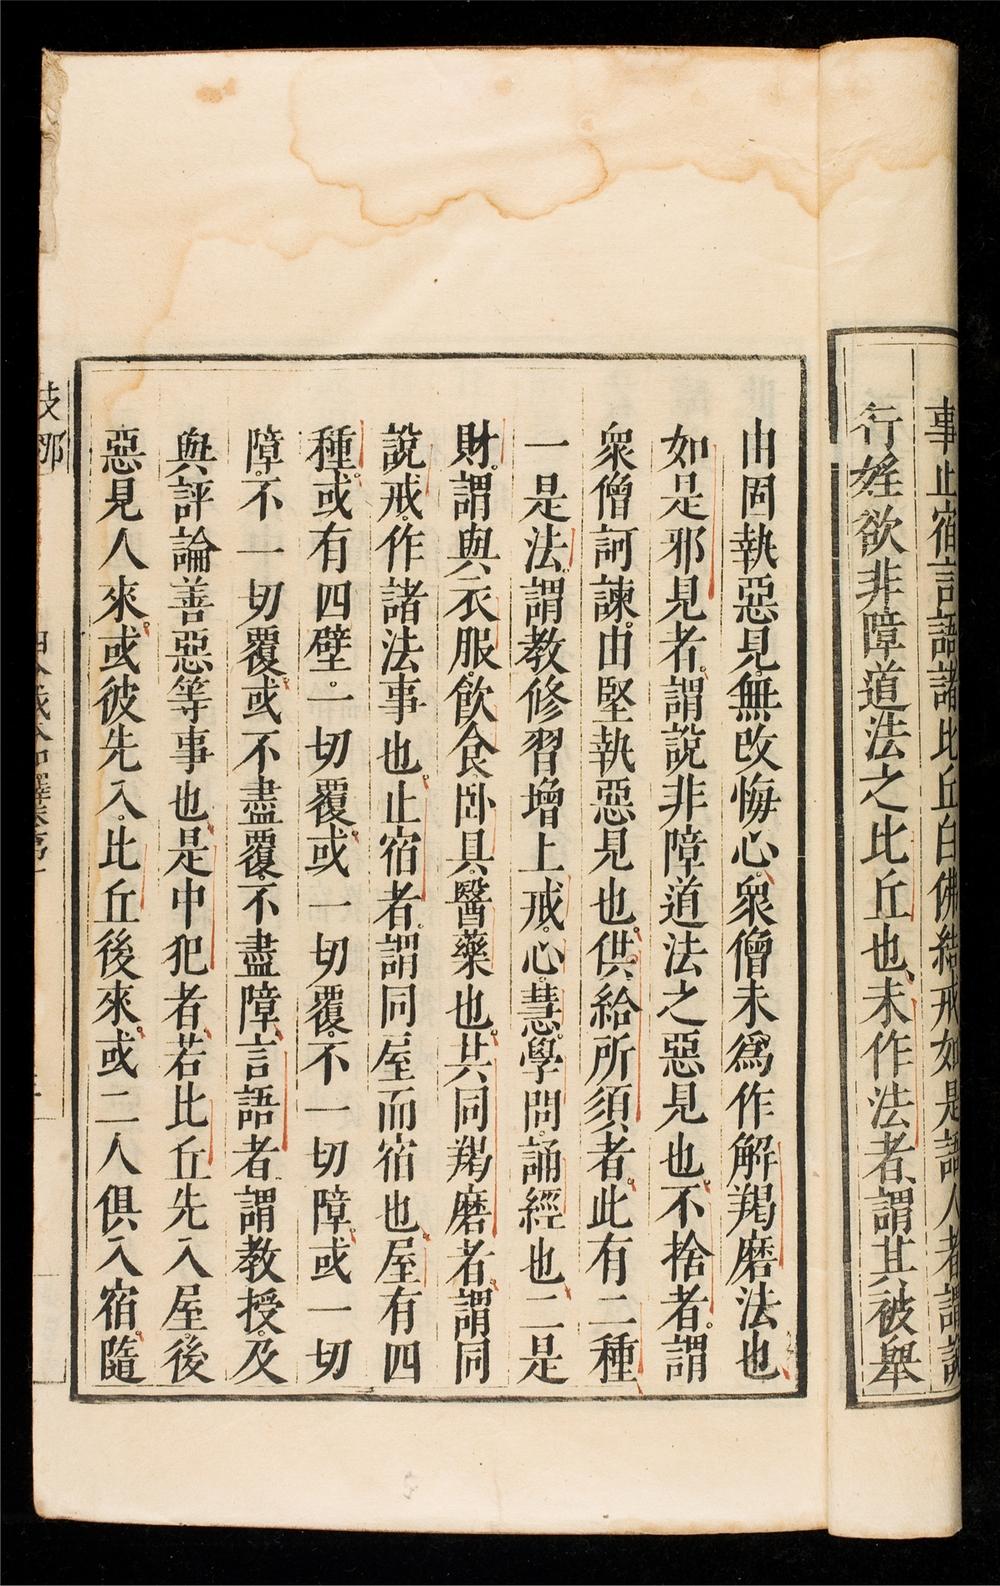 事止宿言語諸比丘白佛結戒如是語人者謂說
行婬欲非障道法之比丘也未作法者謂其被舉
由固執惡見無改悔心衆僧未爲作解羯磨法也
如是邪見者謂說非障道法之惡見也不捨者謂
衆僧訶諫由堅執惡見也供給所須者此有二種
一是法謂教修習增上戒心慧學問誦經也二是
財謂與衣服飲食臥具醫藥也共同羯磨者謂同
說戒作諸法事也止宿者謂同屋而宿也屋有四
種或有四壁一切覆或一切覆不一切障或一切
障不一切覆或不盡覆不盡障言語者謂教授及
與評論善惡等事也是中犯者若比丘先入屋後
惡見人來或彼先入比丘後來或二人俱入宿隨